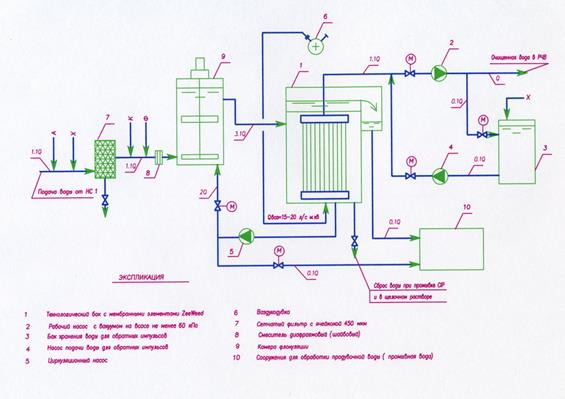 6
9
2
1
1.10
М
Очищенная вода в РЧВ
0
0.10
Х
А
Х
7
К
Ф
3.10
М
4
3
1.10
1.10
8
Подача воды от НС 1
20
М
5
0.10
10
М
0.10
0.10
Сброс воды при промывке CIP
и в щелочном растворе
ЭКСПЛИКАЦИЯ
1 Технологический бак с мембранными элементами ZeeWeed
2 Рабочий насос с вакуумом на всасе не менее 60 кПа
3 Бак хранения воды для обратных импульсов
4 Насос подачи воды для обратных импульсов
5 Циркуляционный насос
6 Воздуходувка
7 Сетчатый фильтр с ячейкой 450 мкм
8 Смеситель диафрагмовый (шайбовый)
9 Камера флокуляции
10 Сооружения для обработки продувочной воды ( промывная вода)